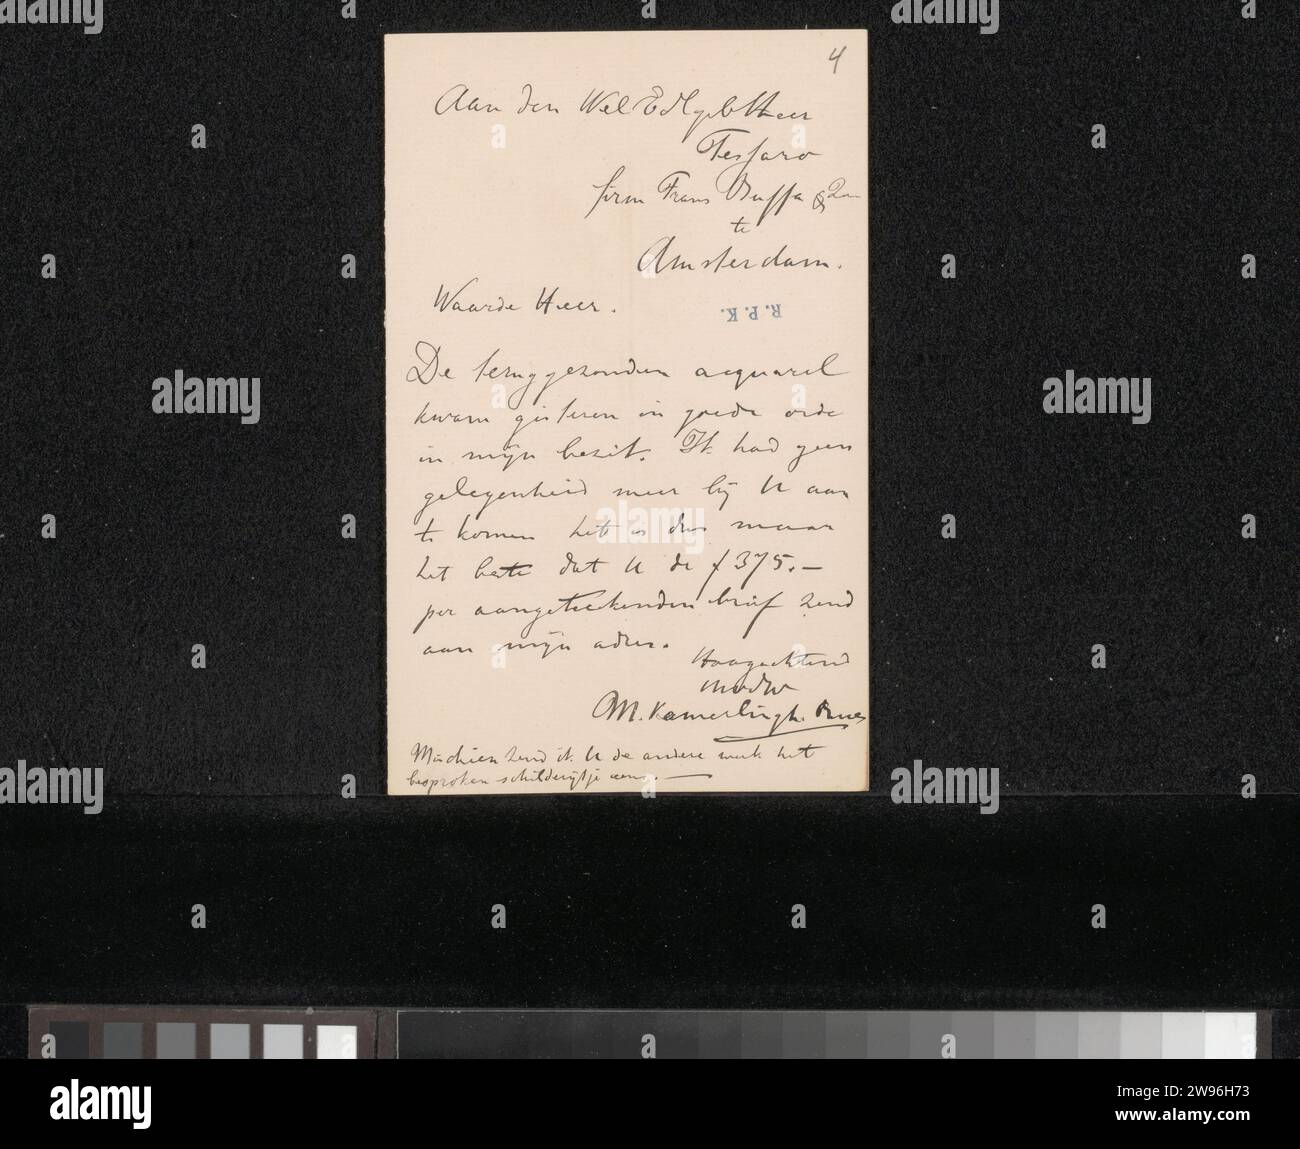 4
Aan den Wel Edlgeb Heer
Tessaro
firm Frans Buffa & Zn
te
Amsterdam.
Waarde Heer.
R.P.K.
De teruggezonden acquarel
kwam gisteren in goede orde
in mijn bezit. Ik had geen
gelegenheid meer bij U aan
te komen het is dus maar
het beste dat U de f 375.—
per aangeteekenden brief zend
aan mijn adres.
Hoogachtend
M. Kamerlingh. Onnes
Misschien zend ik U de andere week het
besproken schilderijtje eens.—
alamy
Image ID: 2W96H73
www.alamy.com